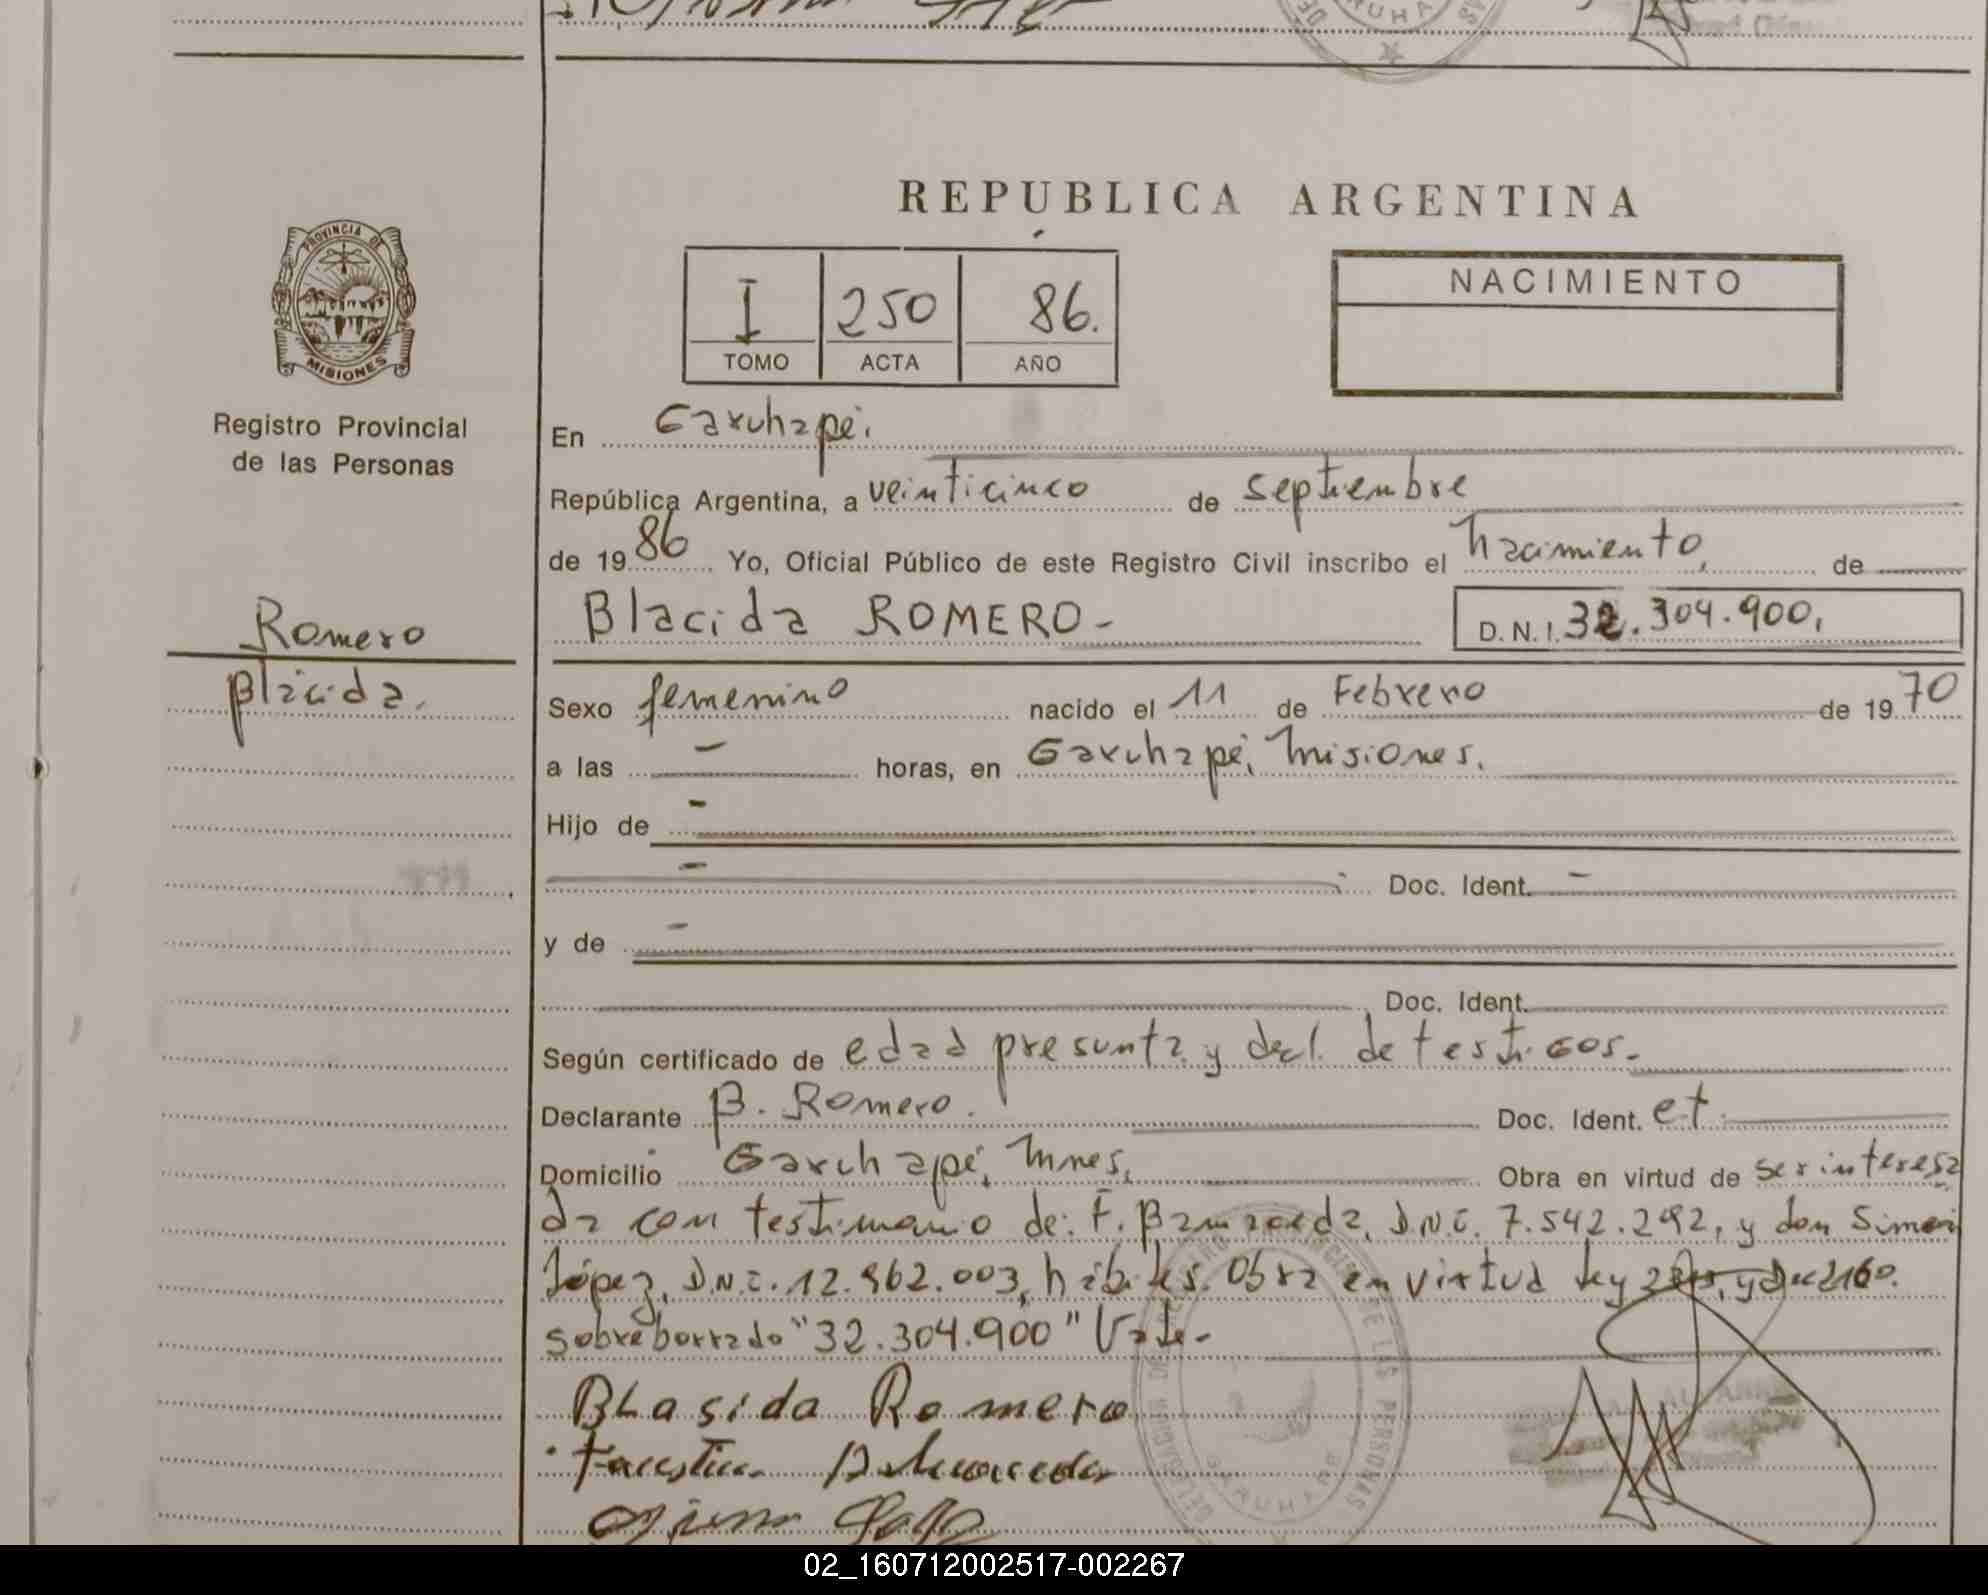 REPUBLICA ARGENTINA
PROVINCIA DE
MISIONES
Registro Provincial
de las Personas
Romero
Blácida.
I 250 86.
TOMO ACTA AÑO
NACIMIENTO
En Garuhapé.
República Argentina, a veinticinco de septiembre
de 19 86 Yo, Oficial Público de este Registro Civil inscribo el nacimiento, de
Blacida ROMERO- D.N.I. 32.304.900,
Sexo femenino nacido el 11 de Febrero de 19 70
a las - horas, en Garuhapé, Misiones.
Hijo de -
- Doc. Ident. -
y de -
Doc. Ident.
Según certificado de edad presunta y decl. de testigos.
Declarante B. Romero. Doc. Ident. et.
Domicilio Garuhapé, Mnes. Obra en virtud de ser interesa
da con testimonio de: F. D.N.I. 7.542.292, y don Simón
López, D.N.I. 12.962.003, hábiles. Obra en virtud ley y Dec 2160.
sobreborrado "32.304.900" Vale-
BLasida Romero
DE LAS PERSONAS
GARUHAPE
02_160712002517-002267